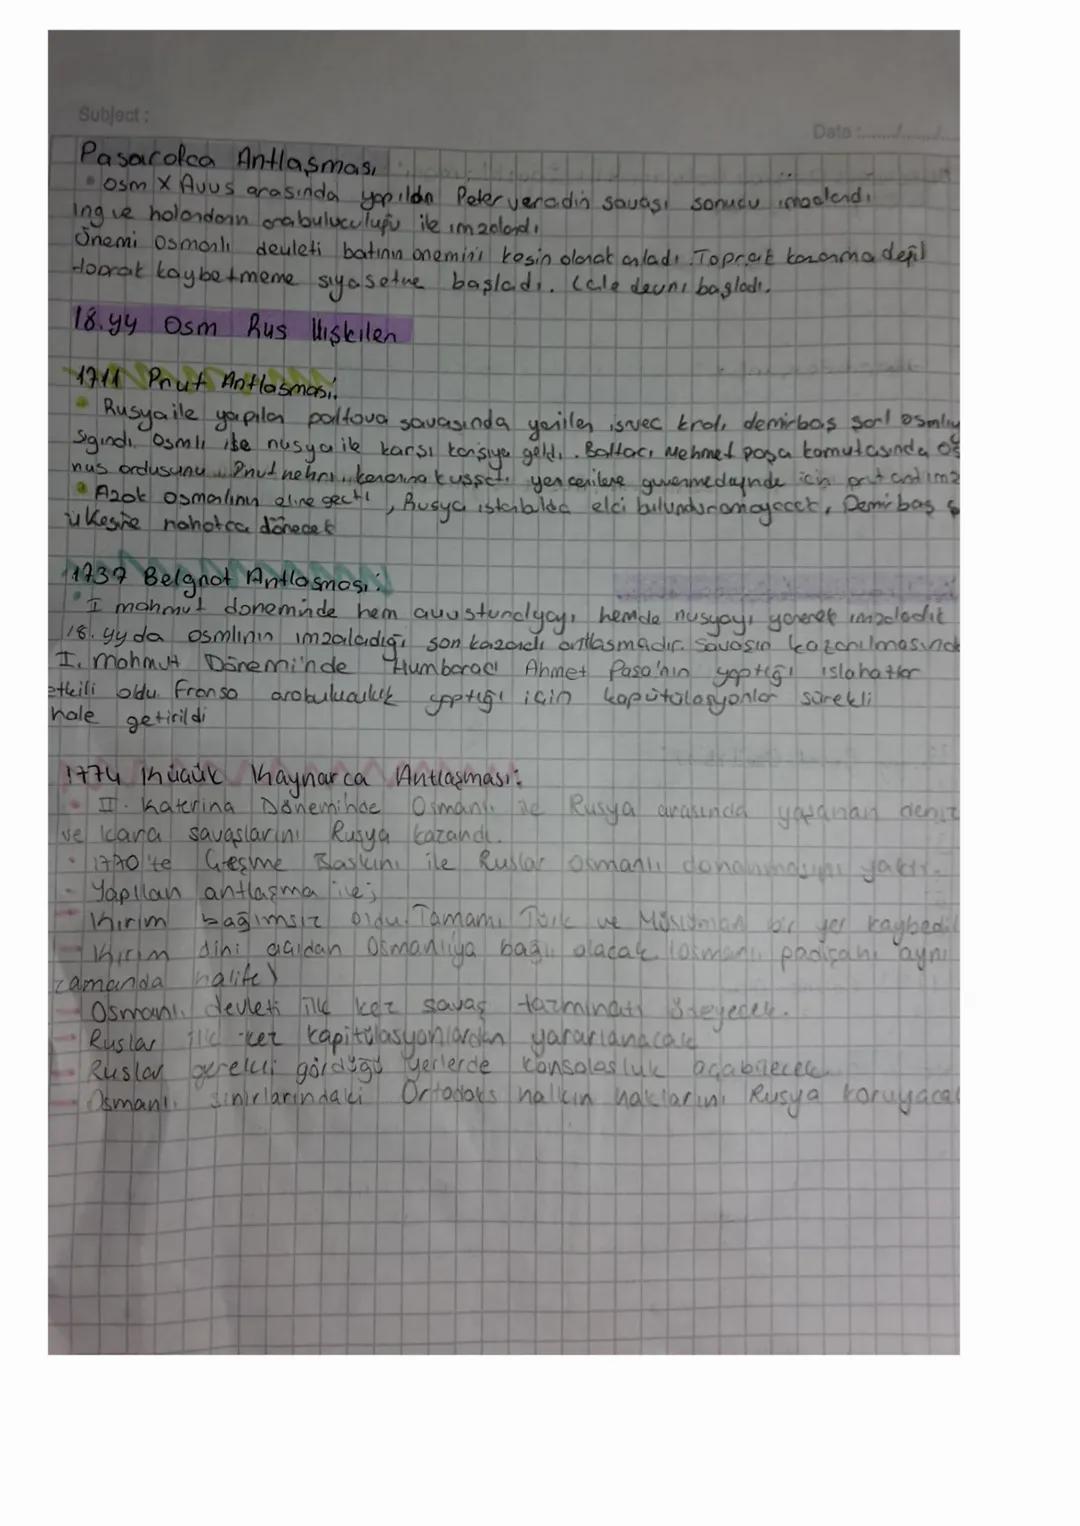 Subject:
Date:....../....../......
Pasarofca Antlaşması
• Osm X Avus arasında yapıldn Petervaradin savası sonucu imzalandı
ing ve holandanın arabuluculuğu ile imzalandı
Önemi Osmanlı devleti batının önemini kesin olarak anladı. Toprak kazanma değil
toprak kaybetmeme siyasetine başladı. Lale devri başladı.
18.yy Osm Rus İlişkileri
1711 Prut Antlasması:
• Rusya ile yapılan poltova savasında yenilen isvec kralı demirbaş sarl osmlıy
Sıgındı. Osmlı ise rusya ile karsı karşıya geldi. Baltacı Mehmet paşa komutasında os
rus ordusunu Prut nehri kenarına kusattı yenicerilere guvenmedıgınde icin prut ant imz
• Azak osmanlının eline gecti, Rusya istanbulda elci bulunduramayacak, Demirbas ş
ülkesine rahatca dönecek
1737 Belgrat Antlasması:
• I mahmut doneminde hem avusturalyayı hemde rusyayı yenerek imzaladık
18. yy da osmlının imzaladığı son kazanclı antlasmadır. Savasın kazanılmasında
I. Mahmut Dönemi'nde Humbaracı Ahmet Pasa'nın yaptığı islahatlar
etkili oldu. Fransa arabuluculuk yaptığı için kapütülasyonlar sürekli
hale getirildi
1774 Küçük Kaynarca Antlaşması:
• II. Katerina Döneminde Osmanlı ile Rusya arasında yaşanan deniz
ve kara savaşlarını Rusya kazandı.
• 1770'te Çeşme Baskını ile Ruslar Osmanlı donanmasını yaktı.
- Yapılan antlaşma ile;
- Kırım bağımsız oldu. Tamamı Türk ve Müslüman bir yer kaybedil
- Kırım dini açıdan Osmanlıya bağlı olacak (osmanlı padişahı aynı
zamanda halife)
- Osmanlı devleti ilk kez savaş tazminatı ödeyecek.
- Ruslar ilk kez kapitülasyonlardan yararlanacak
- Ruslar gerekli gördüğü yerlerde konsolosluk açabilecek
- Osmanlı sınırlarındaki Ortodoks halkın haklarını Rusya koruyacak